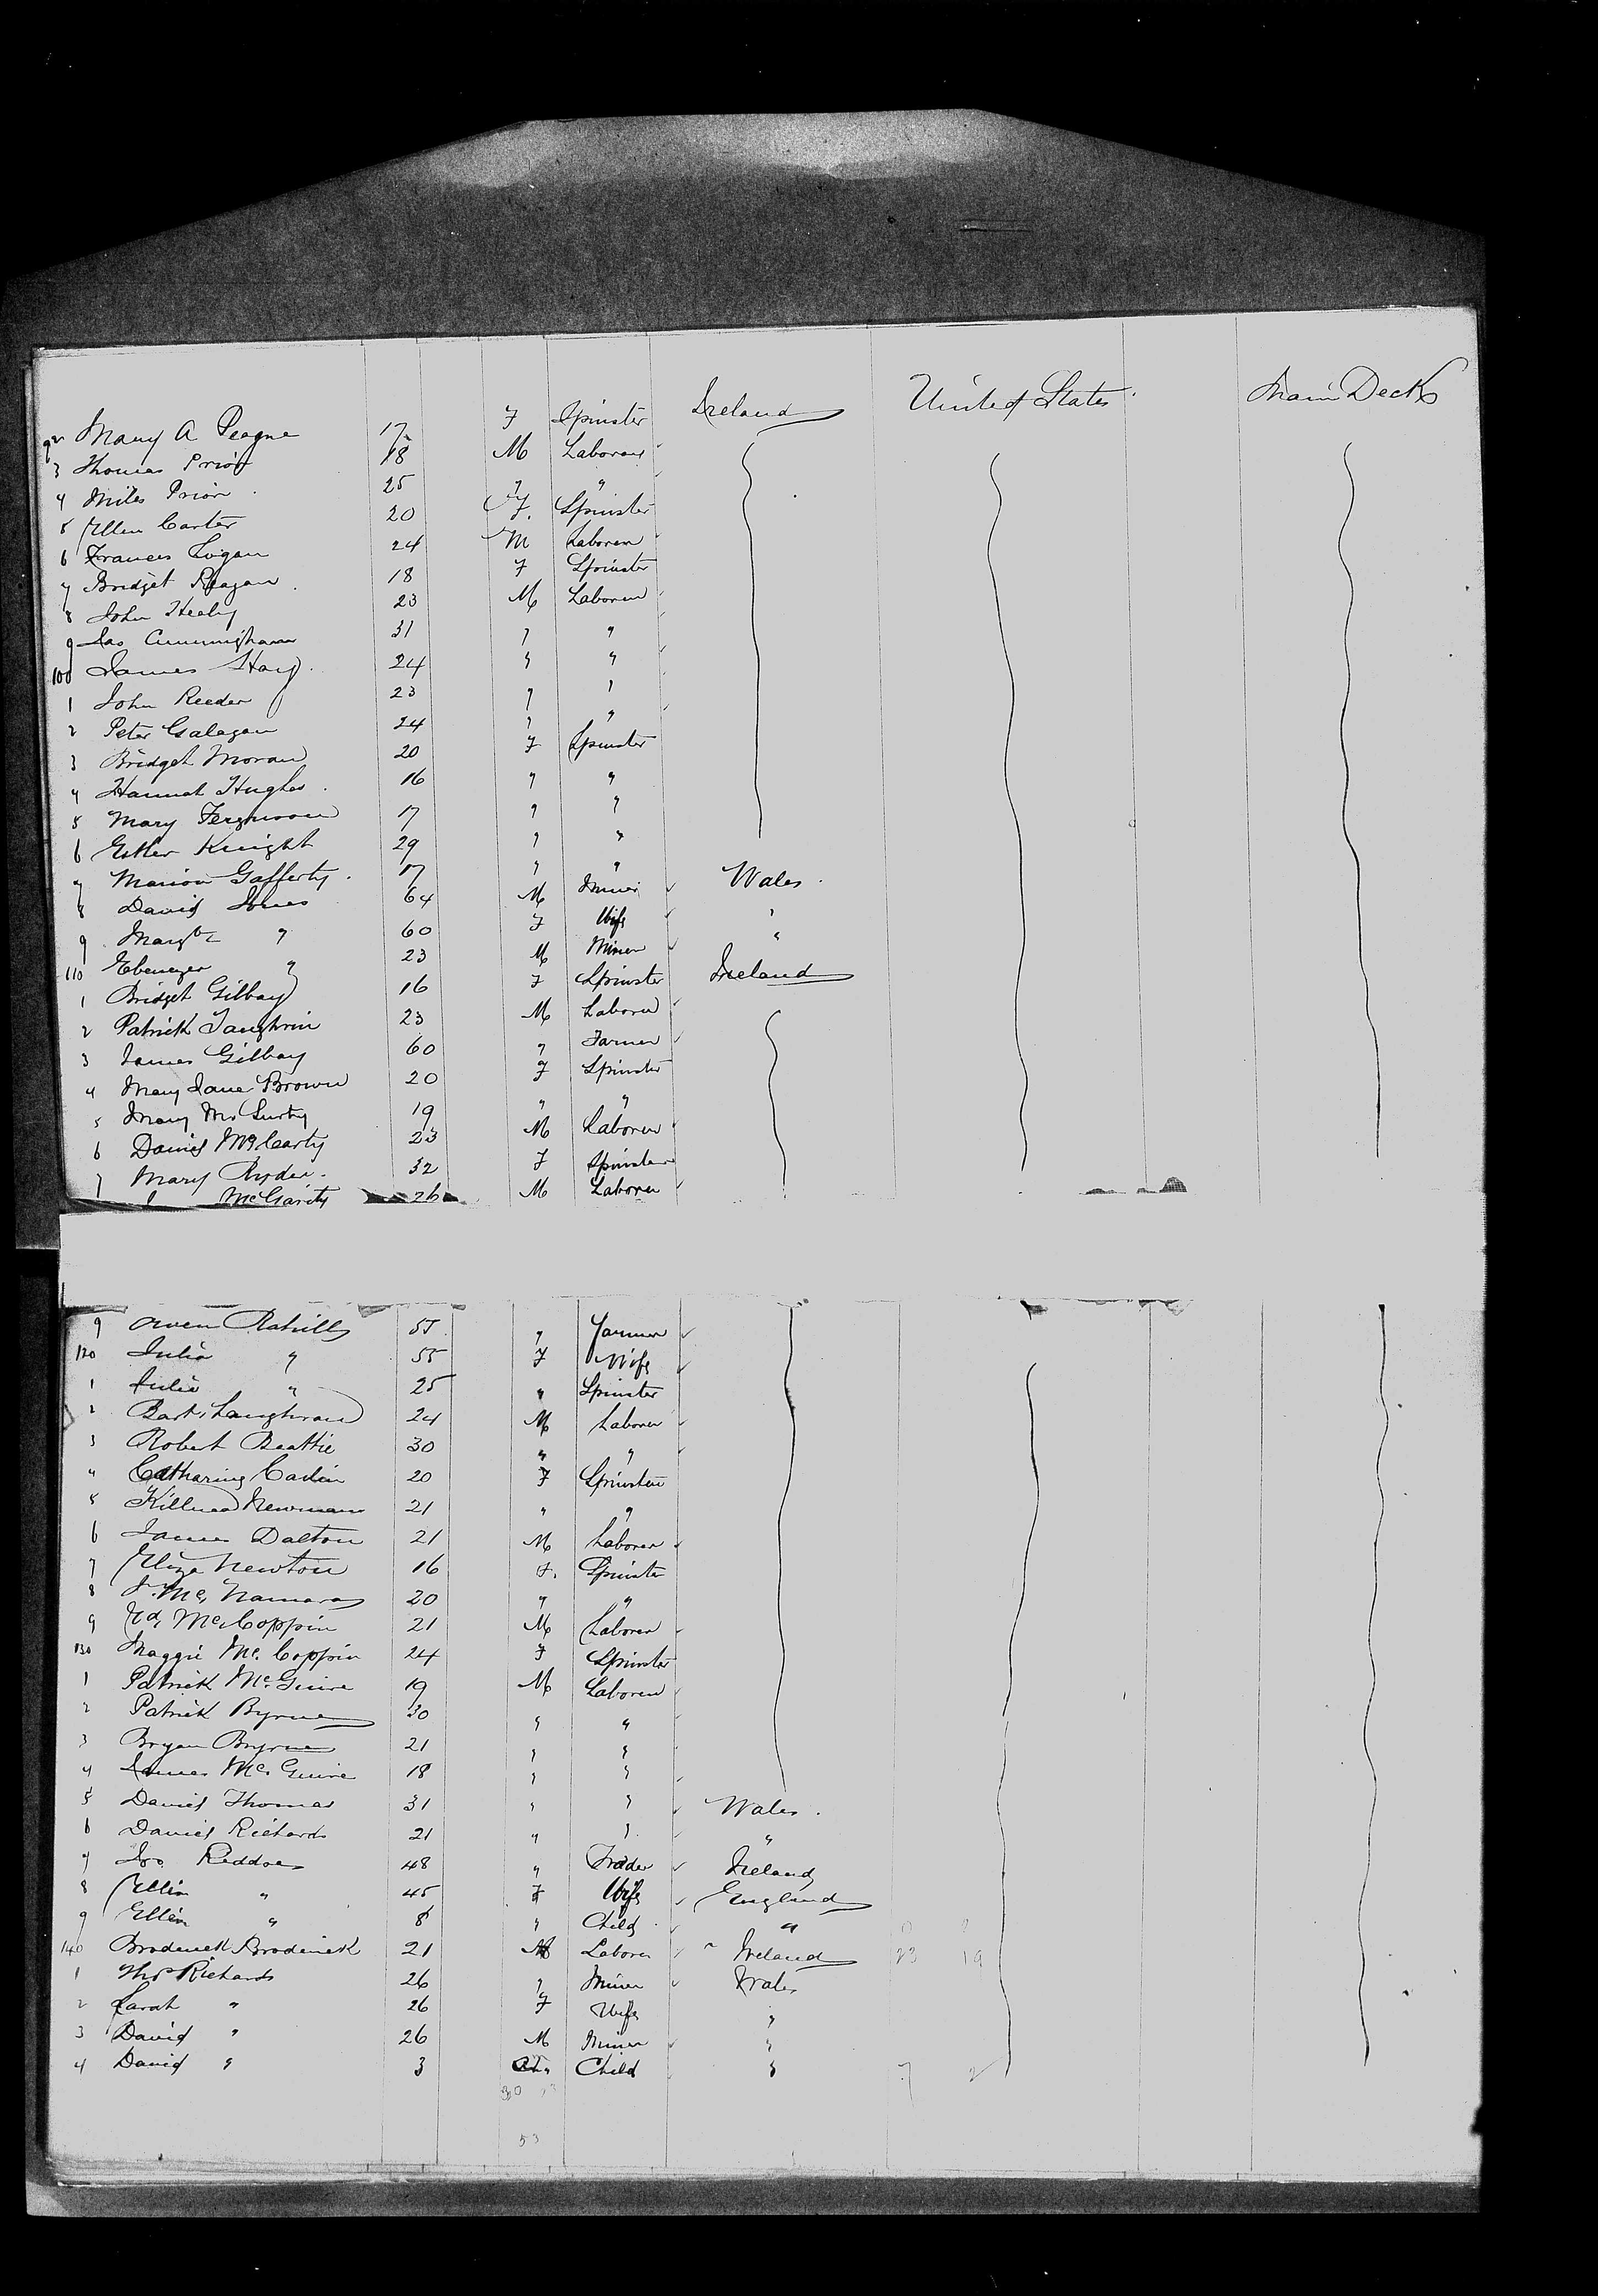 92 Mary A Peagne 17 F Spinster Ireland United States Main Deck
3 Thomas Prior 18 M Laborer
4 Miles Prior 25 " "
5 Ellen Carter 20 F. Spinster
6 Frances Logan 24 M Laborer
7 Bridget Reagan 18 F Spinster
8 John Healy 23 M Laborer
9 Jas Cunningham 31 " "
100 James Hoey 24 " "
1 John Reeder 23 " "
2 Peter Galagan 24 " "
3 Bridget Moran 20 F Spinster
4 Hannah Hughes 16 " "
5 Mary Ferguson 17 " "
6 Esther Knight 29 " "
7 Marion Gafferty 17 " "
8 David Jones 64 M Miner Wales
9 Margt " 60 F Wife "
110 Ebenezer " 23 M Miner "
1 Bridget Gilbay 16 F Spinster Ireland
2 Patrick Laughrin 23 M Laborer
3 James Gilbay 60 " Farmer
4 Mary Jane Brown 20 F Spinster
5 Mary 19 " "
6 Daniel McCarty 23 M Laborer
7 Mary Ryder 32 F Spinster
McGarity 26 M Laborer
9 Owen Rahilly 55 " Farmer
120 Julia " 55 F Wife
1 Julia " 25 " Spinster
2 Bart. Laughran 24 M Laborer
3 Robert Beattie 30 " "
4 Catharine Carlin 20 F Spinster
5 Newman 21 " "
6 James Dalton 21 M Laborer
7 Eliza Newton 16 F. Spinster
8 J. McNamara 20 " "
9 Ed. McCoppin 21 M Laborer
130 Maggie McCoppin 24 F Spinster
1 Patrick McGuire 19 M Laborer
2 Patrick Byrne 30 " "
3 Bryan Byrne 21 " "
4 James McGuire 18 " "
5 Daniel Thomas 31 " " Wales
6 Daniel Richards 21 " " "
7 Jno. Reddoe 48 " Trader Ireland
8 Ellen " 45 F Wife England
9 Ellen " 8 " Child "
140 Broderick Broderick 21 M Laborer Ireland 23 19
1 Thos Richards 26 " Miner Wales
2 Sarah " 26 F Wife "
3 David " 26 M Miner "
4 David " 3 Child " 7 2
30
53